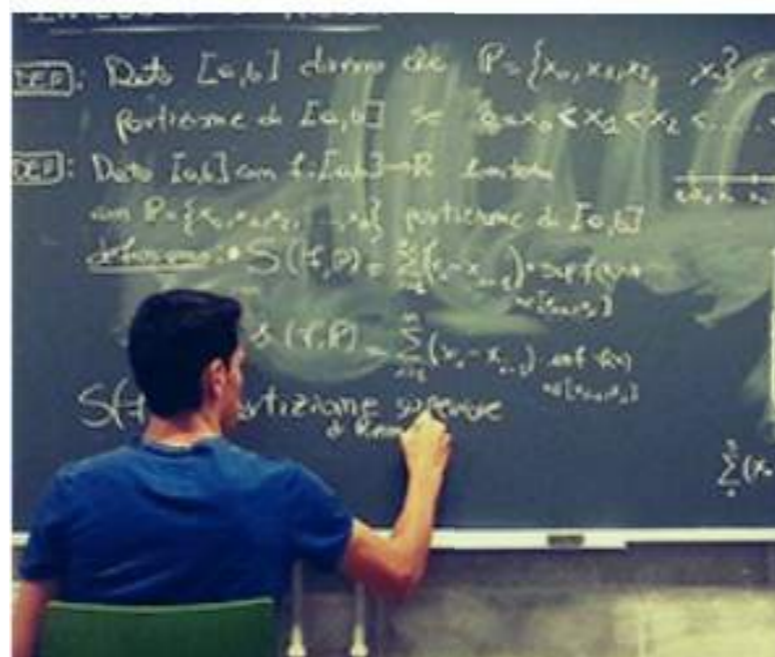 DEF: Dato [a,b] diremo che P={x₀,x₁,x₂, xₙ} è
partizione di [a,b] se a=x₀<x₁<x₂<....<
DEF: Dato [a,b] con f:[a,b]→R limitata
con P={x₀,x₁,x₂,...,xₙ} partizione di [a,b]
definiamo: • S(f,P) = ∑(xᵢ-xᵢ₋₁) · sup f(x)
x∈[xᵢ₋₁,xᵢ]
s(f,P) = ∑(xᵢ-xᵢ₋₁) inf f(x)
x∈[xᵢ₋₁,xᵢ]
S(f partizione superiore
di
∑(xᵢ